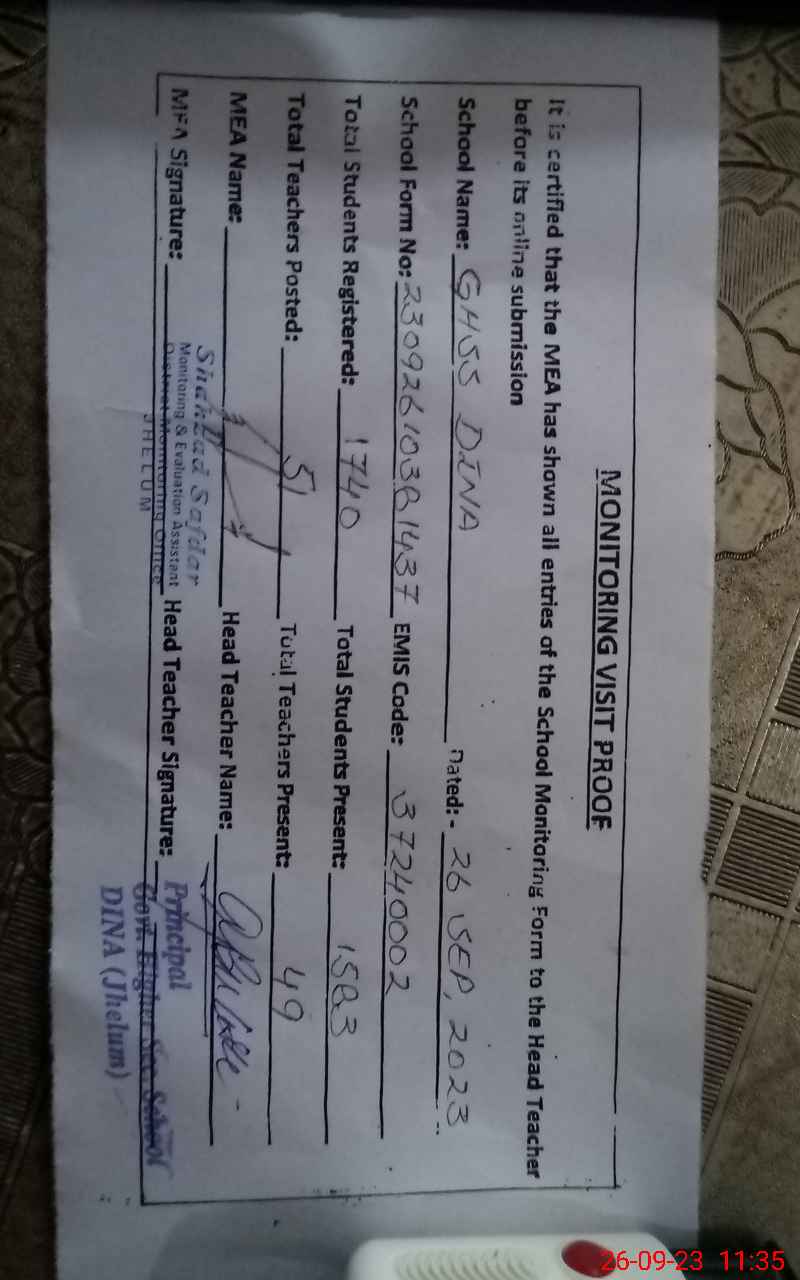 MONITORING VISIT PROOF
It is certified that the MEA has shown all entries of the School Monitoring Form to the Head Teacher
before its online submission
School Name: GHSS DINA Dated: - 26 SEP, 2023
School Form No: EMIS Code: 37240002
Total Students Registered: 1740 Total Students Present: 1583
Total Teachers Posted: 51 Total Teachers Present: 49
MEA Name: Head Teacher Name:
Shahzad Safdar
MEA Signature: Head Teacher Signature:
Monitoring & Evaluation Assistant
District Monitoring Office
JHELUM
Principal
Govt. Higher Sec. School
DINA (Jhelum)
26-09-23 11:35